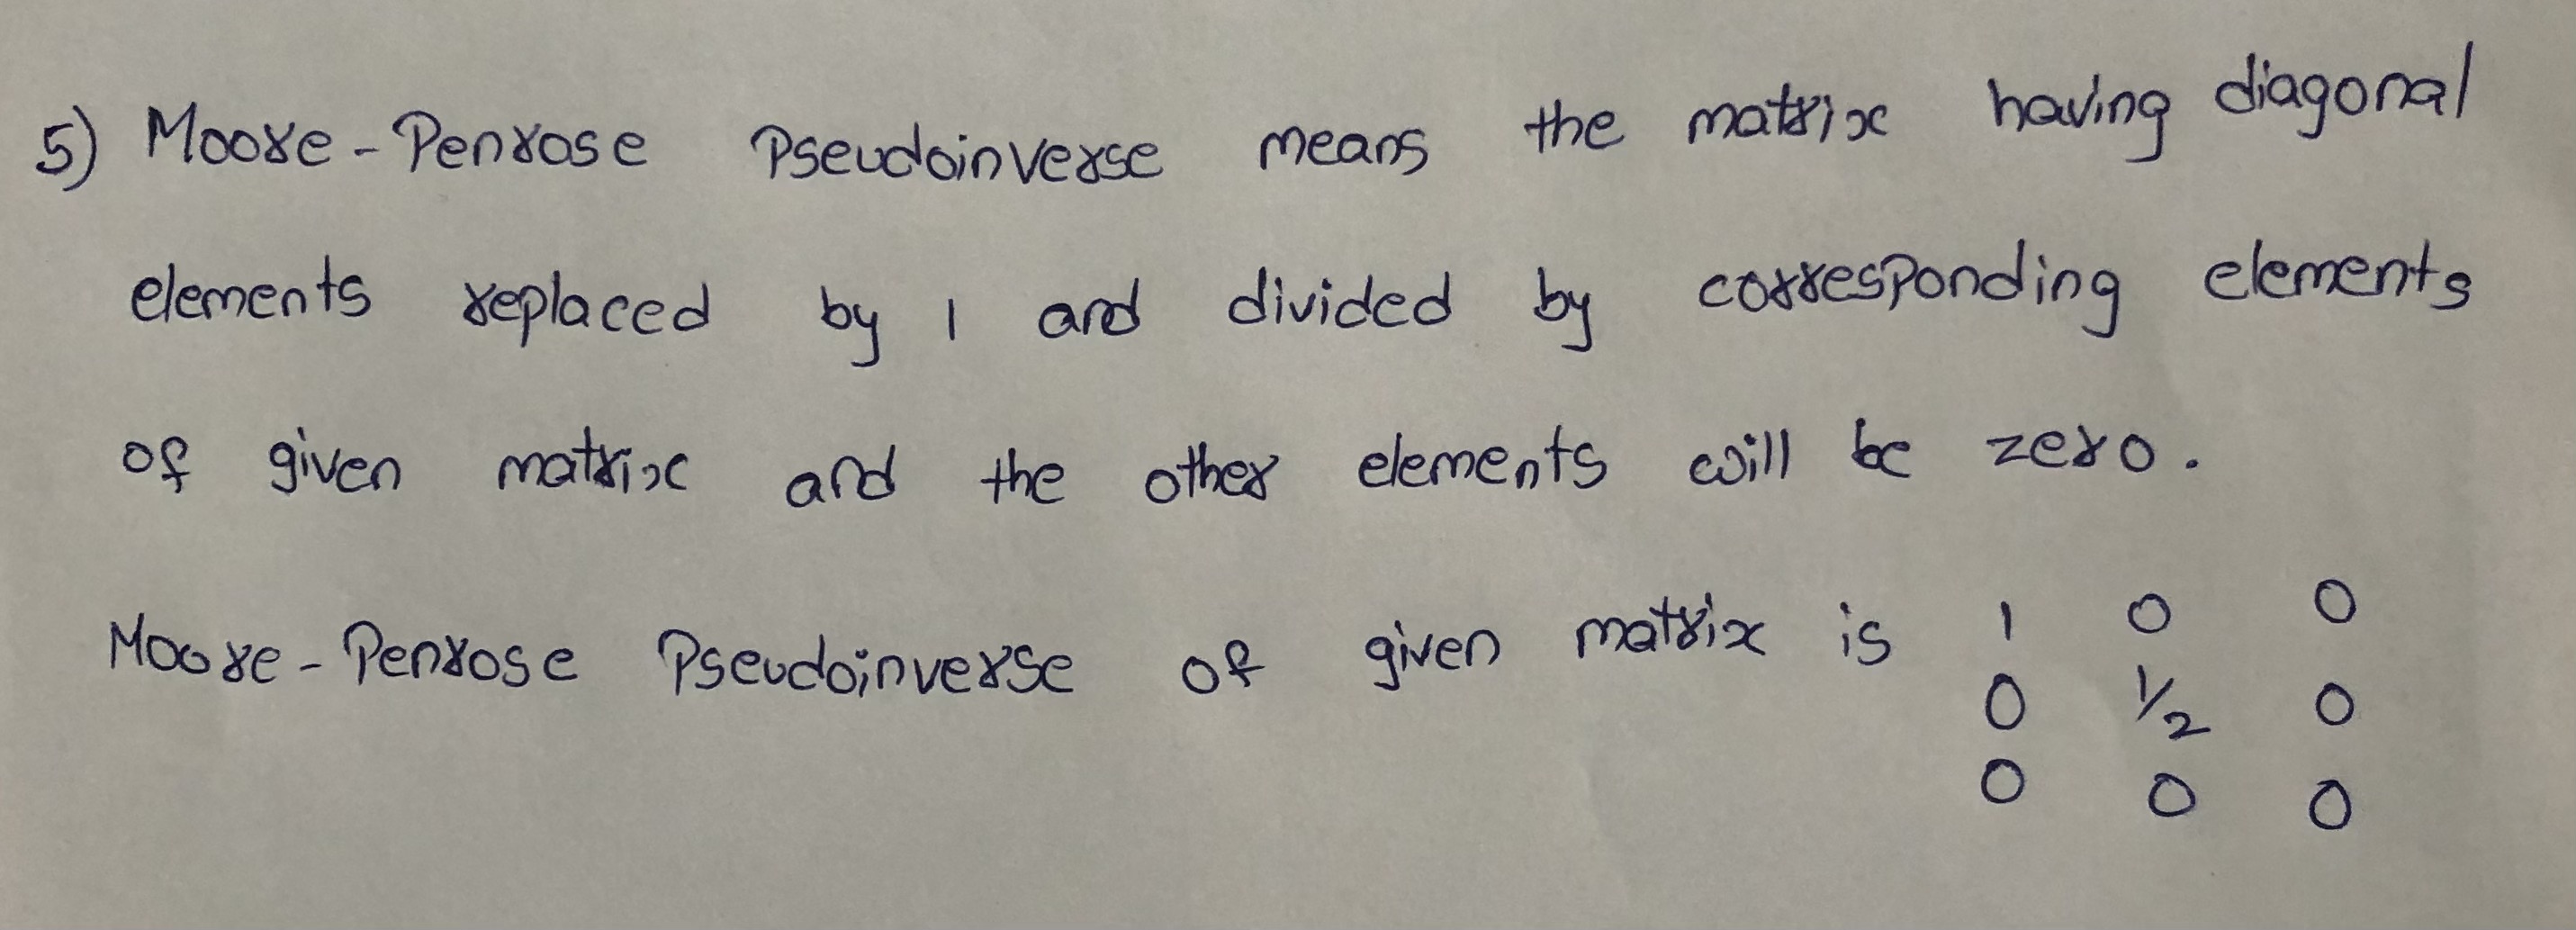 5) Moore-Penrose Pseudoinverse means the matrix having diagonal
elements replaced by 1 and divided by corresponding elements
of given matrix and the other elements will be zero.
Moore-Penrose Pseudoinverse of given matrix is 1 0 0
0 1/2 0
0 0 0